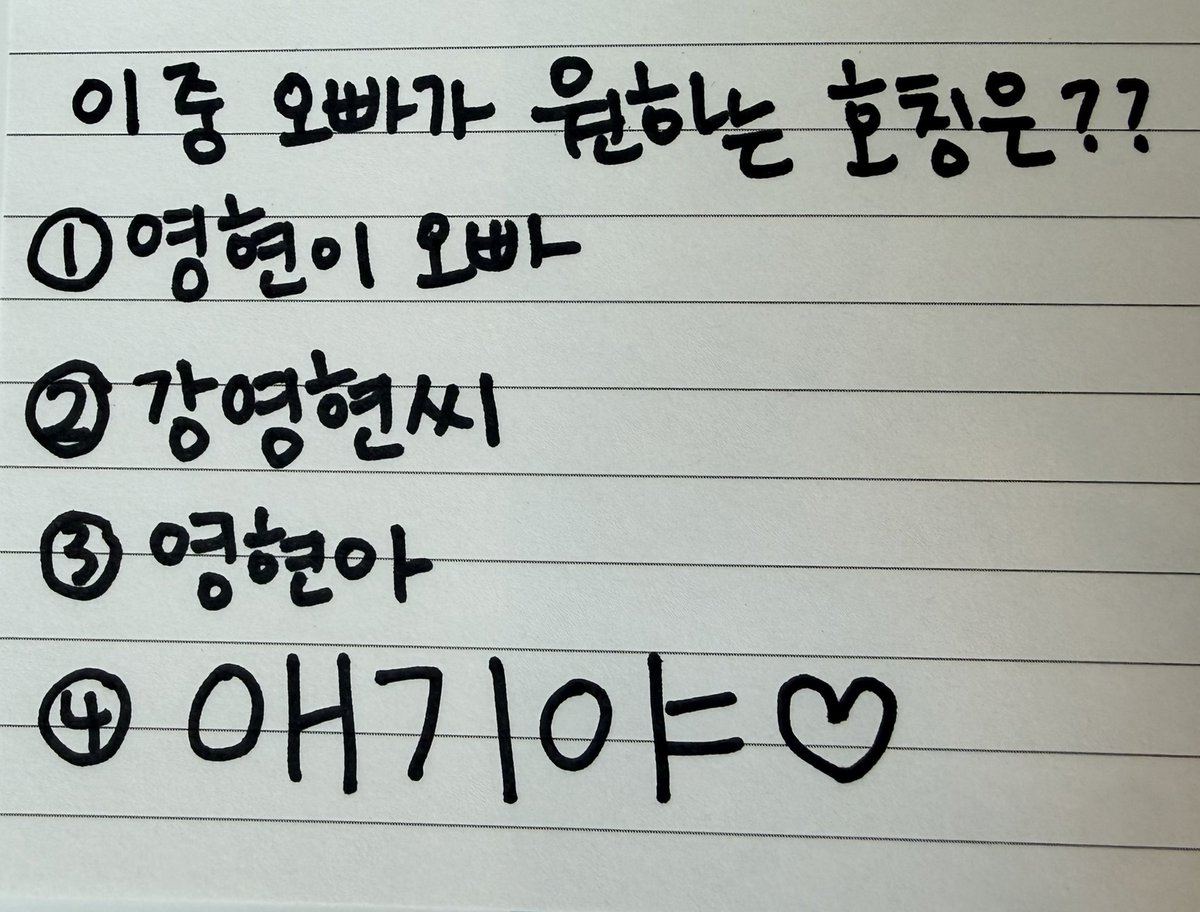 이 중 오빠가 원하는 호칭은??
① 영현이 오빠
② 강영현씨
③ 영현아
④ 애기야♡